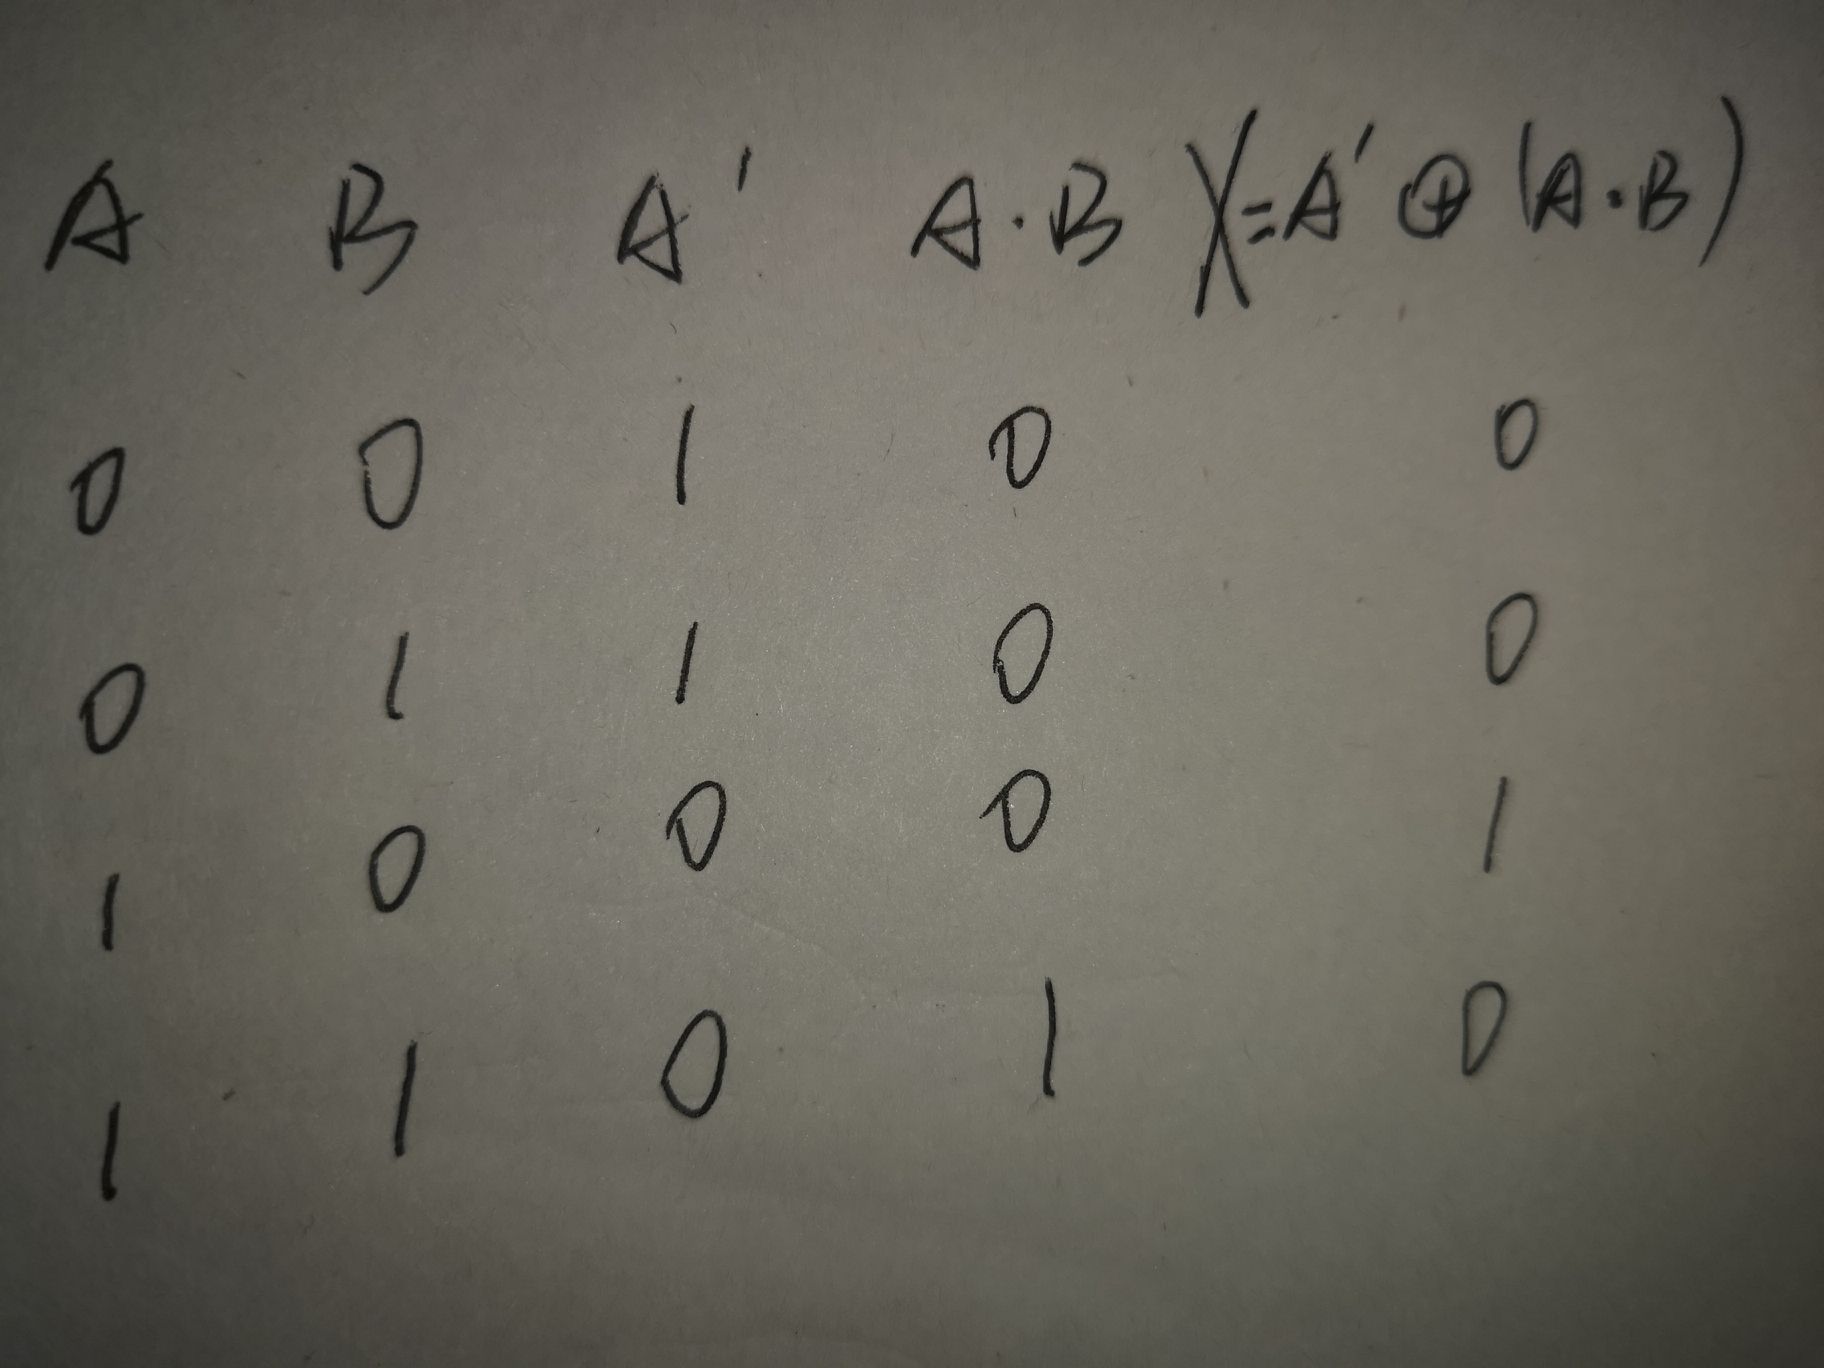 A B A' A·B X=A' ⊕ (A·B)
0 0 1 0 0
0 1 1 0 0
1 0 0 0 1
1 1 0 1 0